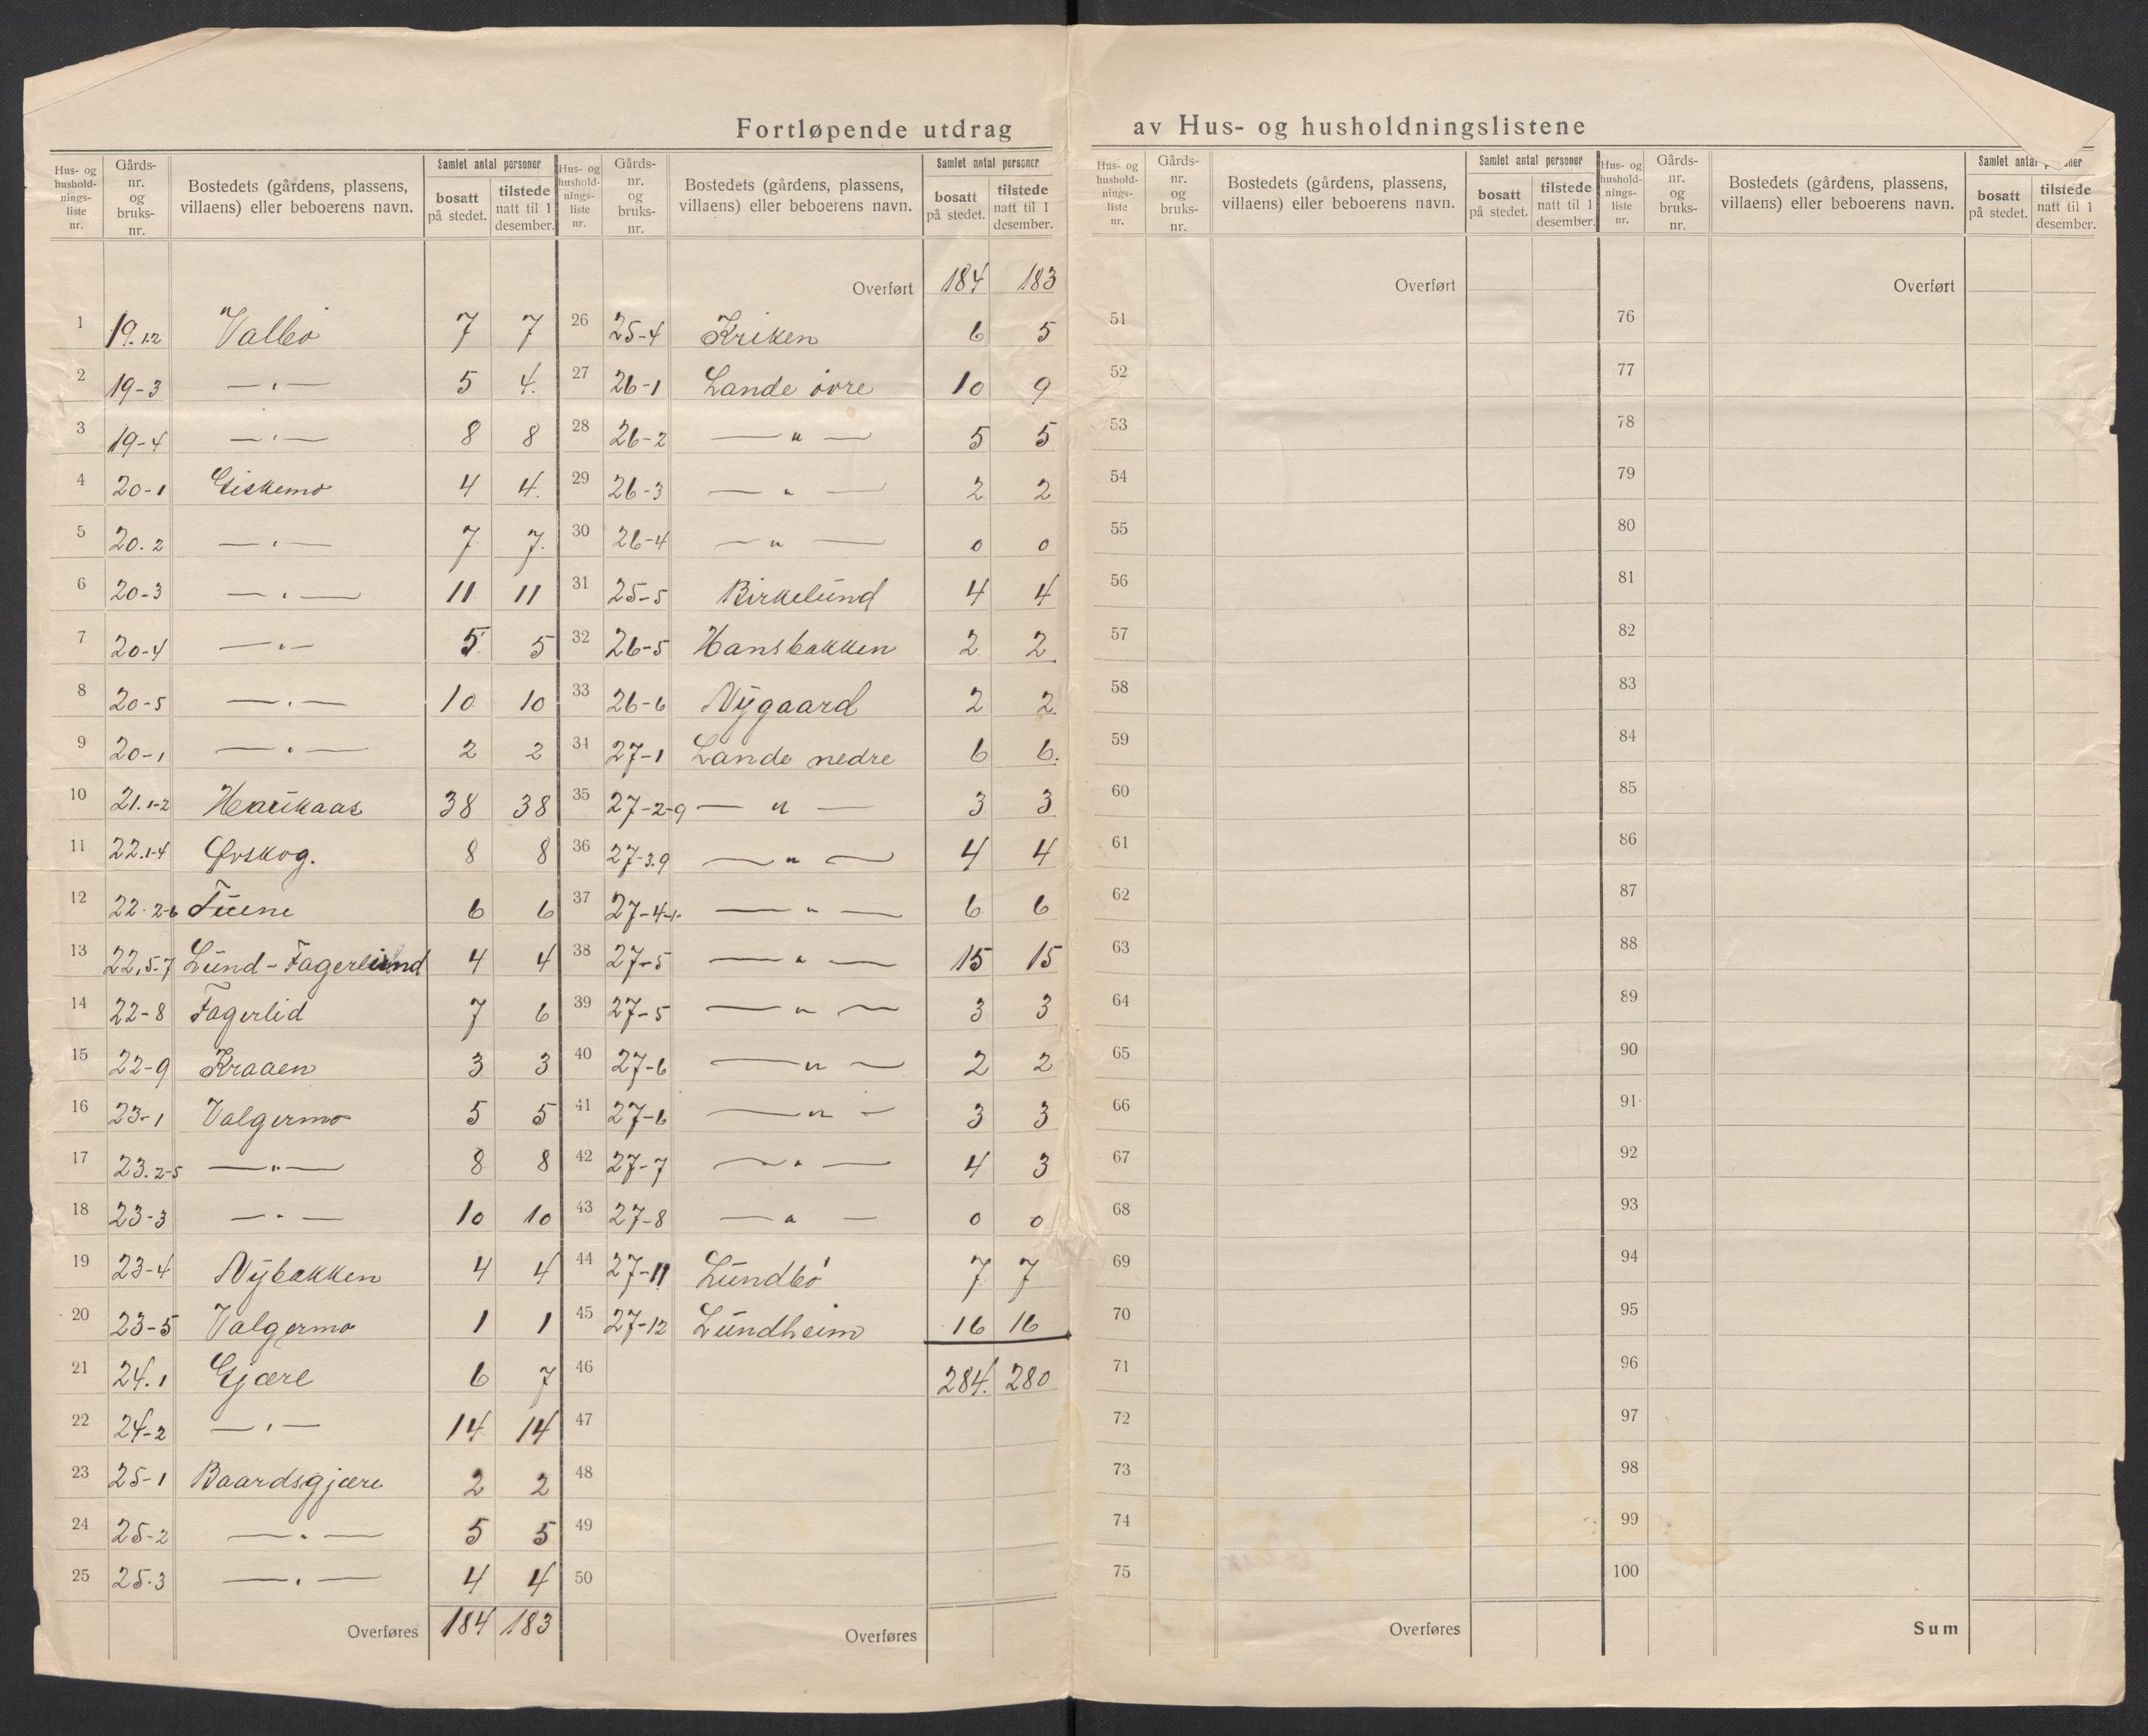 Fortløpende utdrag av Hus- og husholdningslistene
Hus- og husholdnings-liste nr. | Gårds-nr. og bruks-nr. | Bostedets (gårdens, plassens, villaens) eller beboerens navn. | Samlet antal personer | bosatt på stedet. | tilstede natt til 1 desember.
1 19.12 Valbø 7 7
2 19-3 — " — 5 4.
3 19-4 — " — 8 8
4 20-1 Giskemo 4 4.
5 20.2 — " — 7 7.
6 20-3 — " — 11 11
7 20-4 — " — 5 5
8 20-5 — " — 10 10
9 20-1 — " — 2 2
10 21.1-2 Haukaas 38 38
11 22.1-4 Øvskog. 8 8
12 22.2-6 Tuene 6 6
13 22,5-7 Lund-Fagerlund 4 4
14 22-8 Fagerlid 7 6
15 22-9 Kraaen 3 3
16 23-1 Valgermo 5 5
17 23.2-5 — " — 8 8
18 23-3 — " — 10 10
19 23-4 Nybakken 4 4
20 23-5 Valgermo 1 1
21 24.1 Gjære 6 7
22 24-2 — " — 14 14
23 25-1 Baardsgjære 2 2
24 25-2 — " — 5 5
25 25.3 — " — 4 4
Overføres 184 183
Hus- og husholdnings-liste nr. | Gårds-nr. og bruks-nr. | Bostedets (gårdens, plassens, villaens) eller beboerens navn. | Samlet antal personer | bosatt på stedet. | tilstede natt til 1 desember.
Overført 184 183
26 25-4 Kriken 6 5
27 26-1 Lande övre 10 9
28 26-2 — " — 5 5
29 26-3 — " — 2 2
30 26-4 — " — 0 0
31 25-5 Birkelund 4 4
32 26-5 Hansbakken 2 2
33 26-6 Nygaard 2 2.
34 27-1 Lande nedre 6 6.
35 27-2-9 — " — 3 3
36 27-3.9 — " — 4 4
37 27-4 — " — 6 6
38 27-5 — " — 15 15
39 27-5 — " — 3 3
40 27-6 — " — 2 2
41 27-6 — " — 3 3
42 27-7 — " — 4 3
43 27-8 — " — 0 0
44 27-11 Lundbø 7 7
45 27-12 Lundheim 16 16
46 284. 280
47
48
49
50
Overføres
Hus- og husholdnings-liste nr. | Gårds-nr. og bruks-nr. | Bostedets (gårdens, plassens, villaens) eller beboerens navn. | Samlet antal personer | bosatt på stedet. | tilstede natt til 1 desember.
Overført
51
52
53
54
55
56
57
58
59
60
61
62
63
64
65
66
67
68
69
70
71
72
73
74
75
Overføres
Hus- og husholdnings-liste nr. | Gårds-nr. og bruks-nr. | Bostedets (gårdens, plassens, villaens) eller beboerens navn. | Samlet | bosatt på stedet. | tilstede natt til 1 desember.
Overført
76
77
78
79
80
81
82
83
84
85
86
87
88
89
90
91
92
93
94
95
96
97
98
99
100
Sum